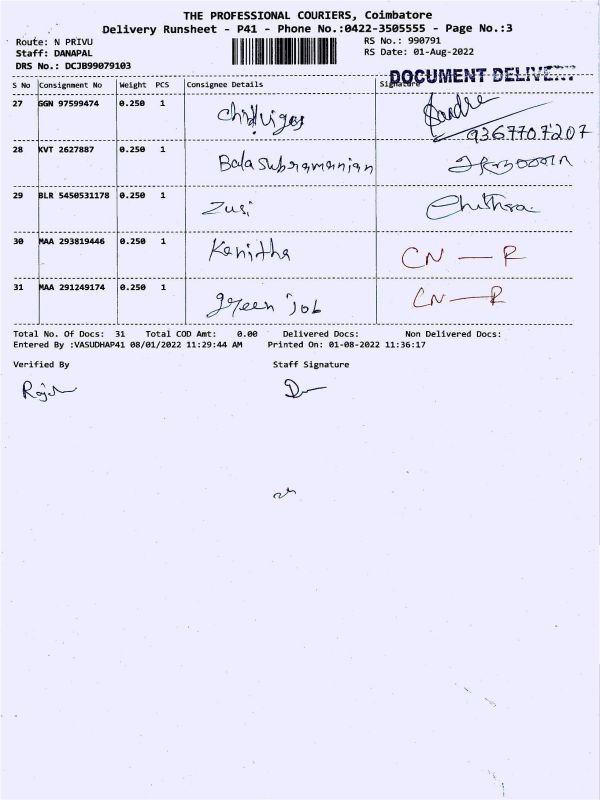 THE PROFESSIONAL COURIERS, Coimbatore
Delivery Runsheet - P41 - Phone No.:0422-3505555 - Page No.:3
Route: N PRIVU RS No.: 990791
Staff: DANAPAL RS Date: 01-Aug-2022
DRS No.: DCJB99079103
DOCUMENT DELIVE
S No Consignment No Weight PCS Consignee Details Signature
27 GGN 97599474 0.250 1
9367707207
28 KVT 2627887 0.250 1 Balasubramanian
29 BLR 5450531178 0.250 1 Zusi Chithra
30 MAA 293819446 0.250 1 Kanitha CN — R
31 MAA 291249174 0.250 1 green job CN — R
Total No. Of Docs: 31 Total COD Amt: 0.00 Delivered Docs: Non Delivered Docs:
Entered By :VASUDHAP41 08/01/2022 11:29:44 AM Printed On: 01-08-2022 11:36:17
Verified By Staff Signature